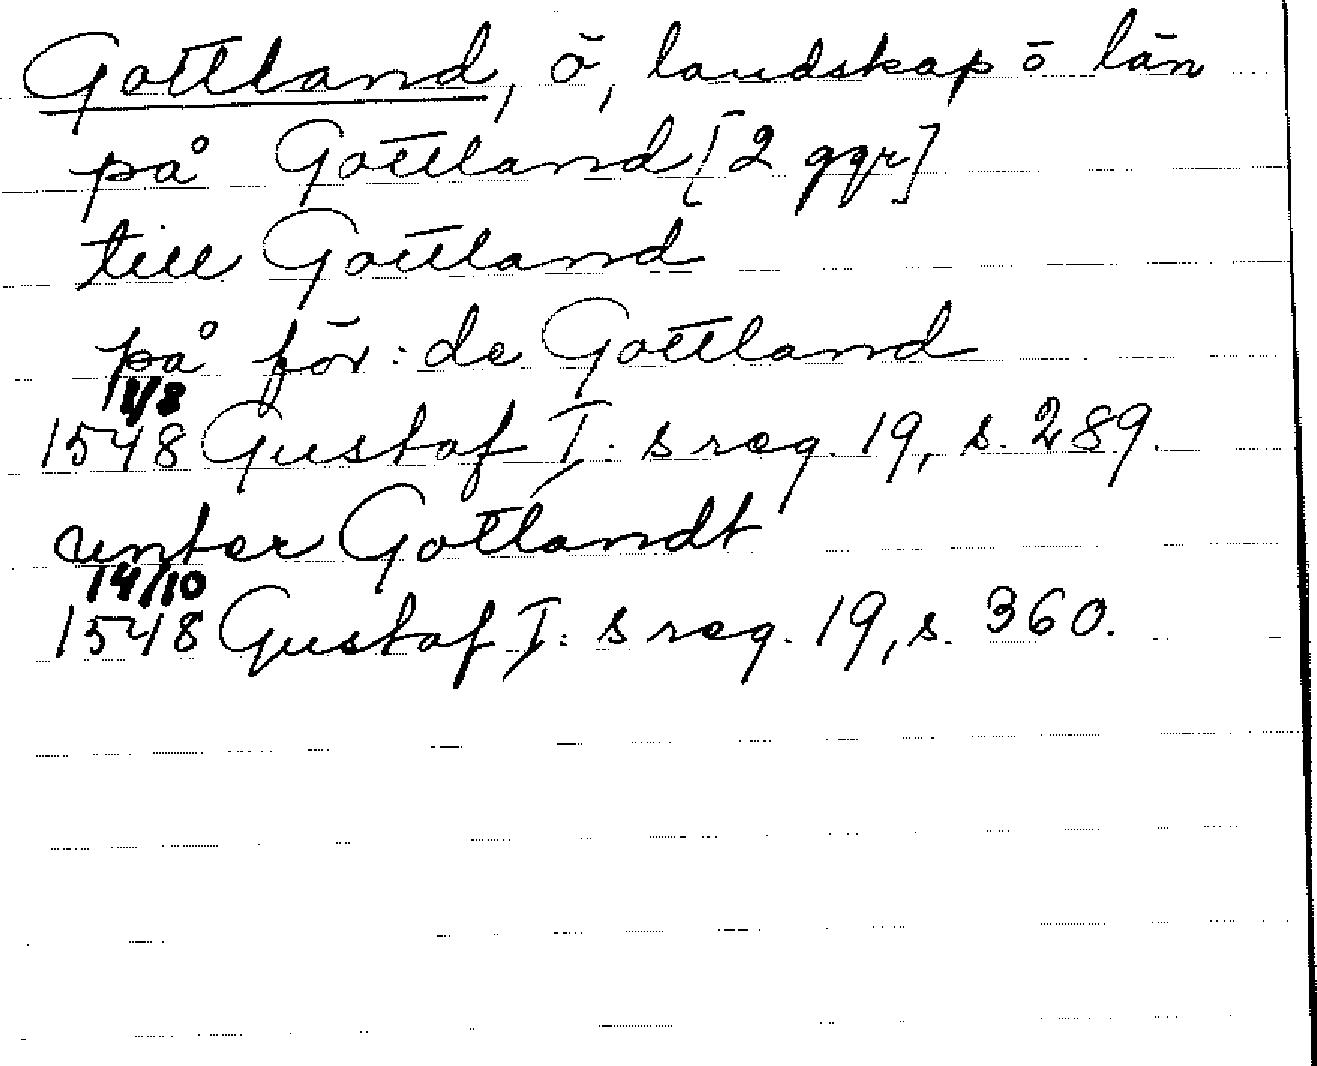 Gottland, ö, landskap o län
på Gottland [2 ggr]
till Gottland
på för:de Gottland
1/8
1548 Gustaf I:s reg. 19, s. 289.
unter Gotlandt
14/10
1548 Gustaf I:s reg. 19, s. 360.